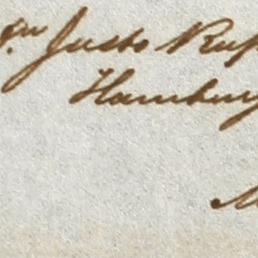 Justo Rup
Hamburg